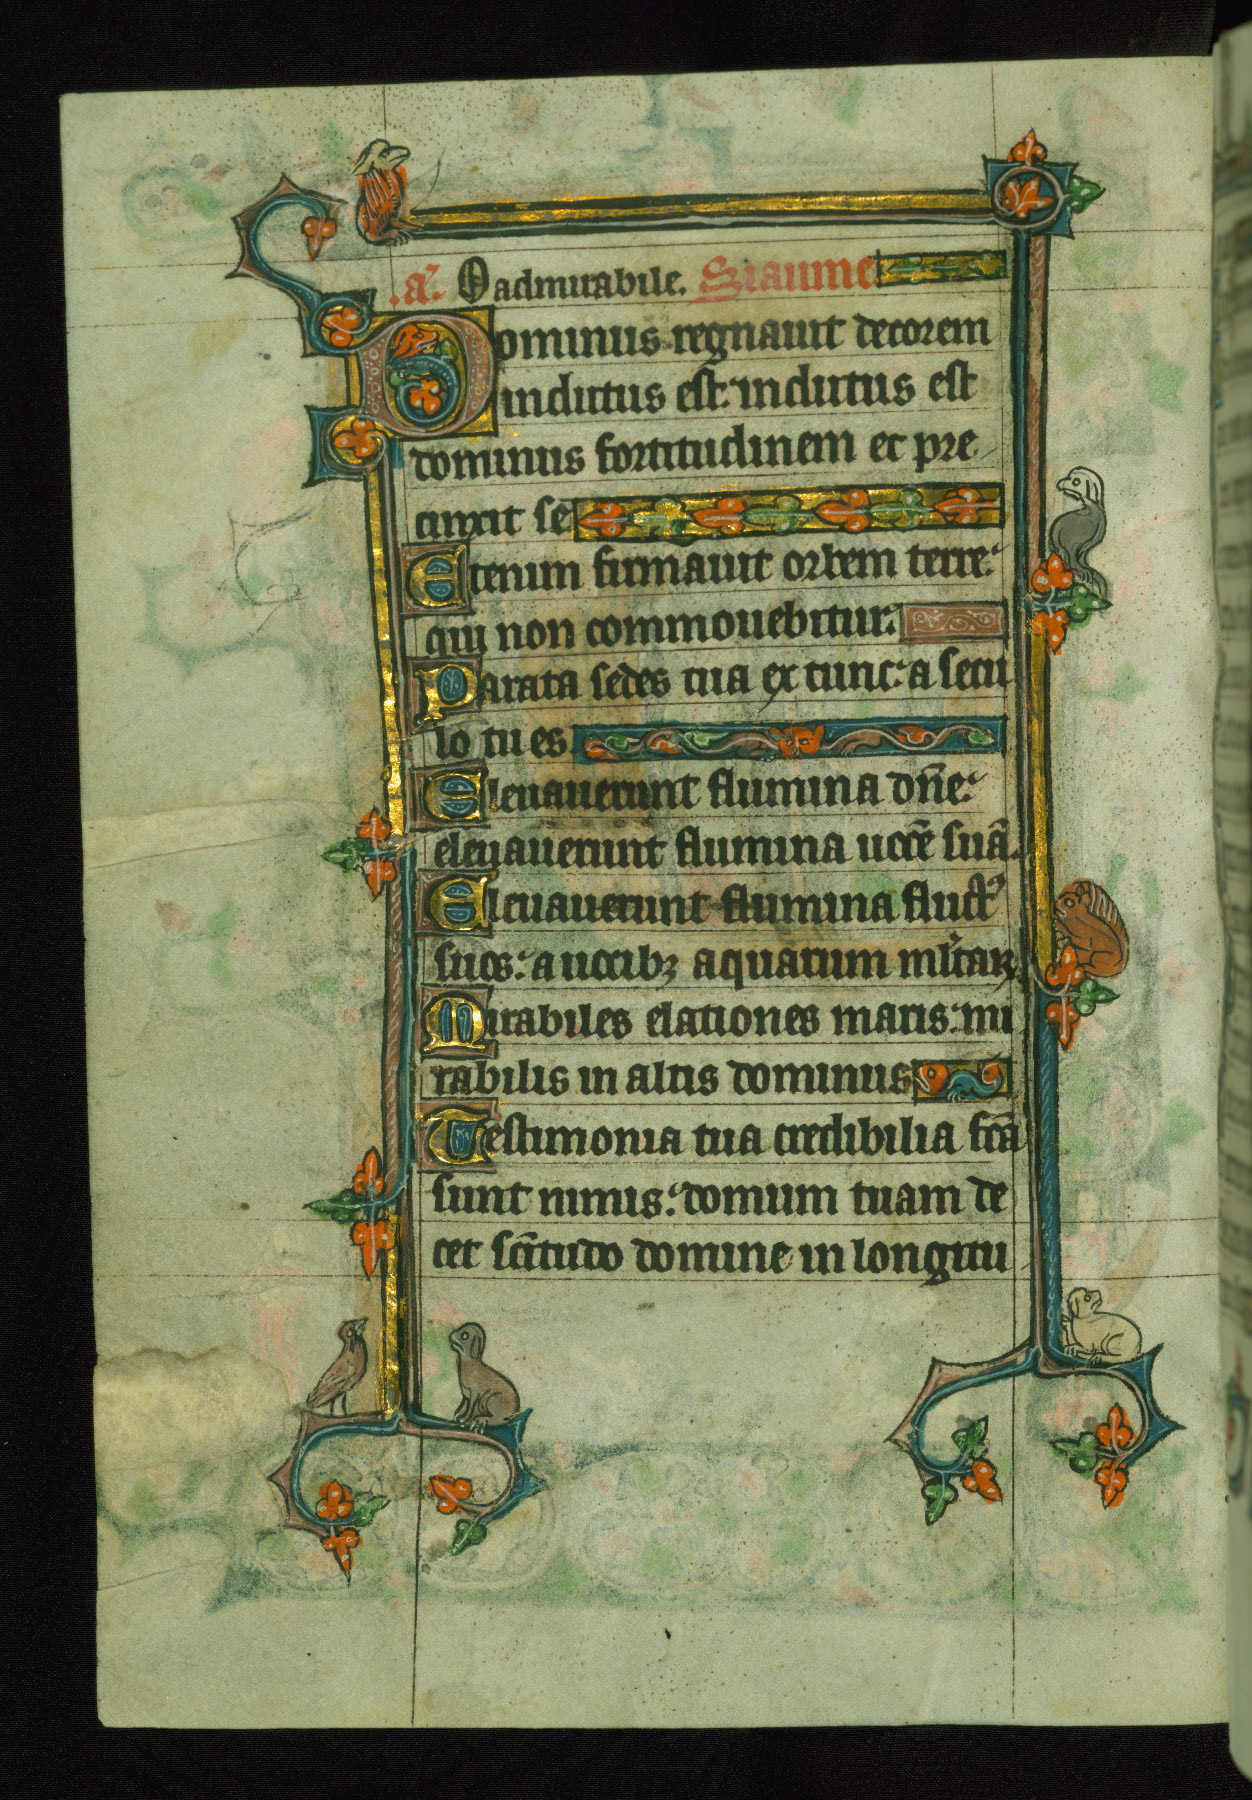 .a. O admirabile. Siaume
Dominus regnauit decorem
indutus est: indutus est
dominus fortitudinem et pre
cinxit se
Etenim firmauit orbem terre:
qui non commouebitur.
Parata sedes tua ex tunc: a secu
lo tu es
Eleuauerunt flumina dñe:
eleuauerunt flumina uocē suā.
Eleuauerunt flumina fluctꝰ
suos: a uocibꝫ aquarum ml̛taꝝ
Mirabiles elationes maris: mi
rabilis in altis dominus
Testimonia tua credibilia fcā
sunt nimis: domum tuam de
cet scītudo domine in longitu